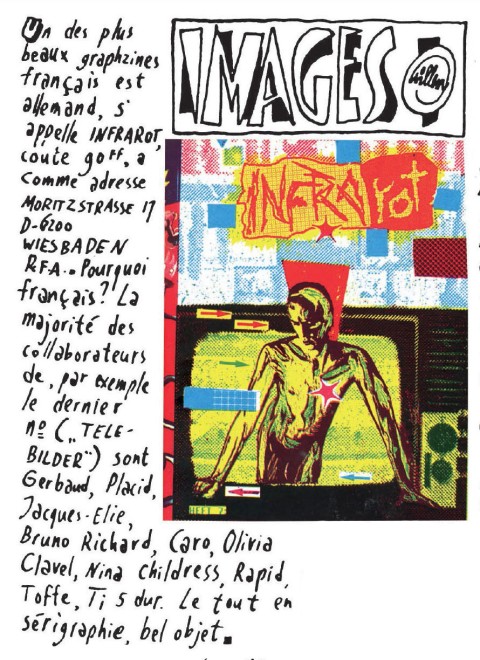 Un des plus
beaux graphzines
français est
allemand, s'
appelle INFRAROT,
coute 90FF, a
comme adresse
MORITZSTRASSE 17
D-6200
WIESBADEN
R.F.A.. Pourquoi
français? La
majorité des
collaborateurs
de, par exemple
le dernier
nº („TELE-
BILDER") sont
Gerbaud, Placid,
Jacques-Elie,
Bruno Richard, Caro, Olivia
Clavel, Nina Childress, Rapid,
Toffe, Ti 5 dur. Le tout en
sérigraphie, bel objet.
IMAGES
Willem
INFRA rot